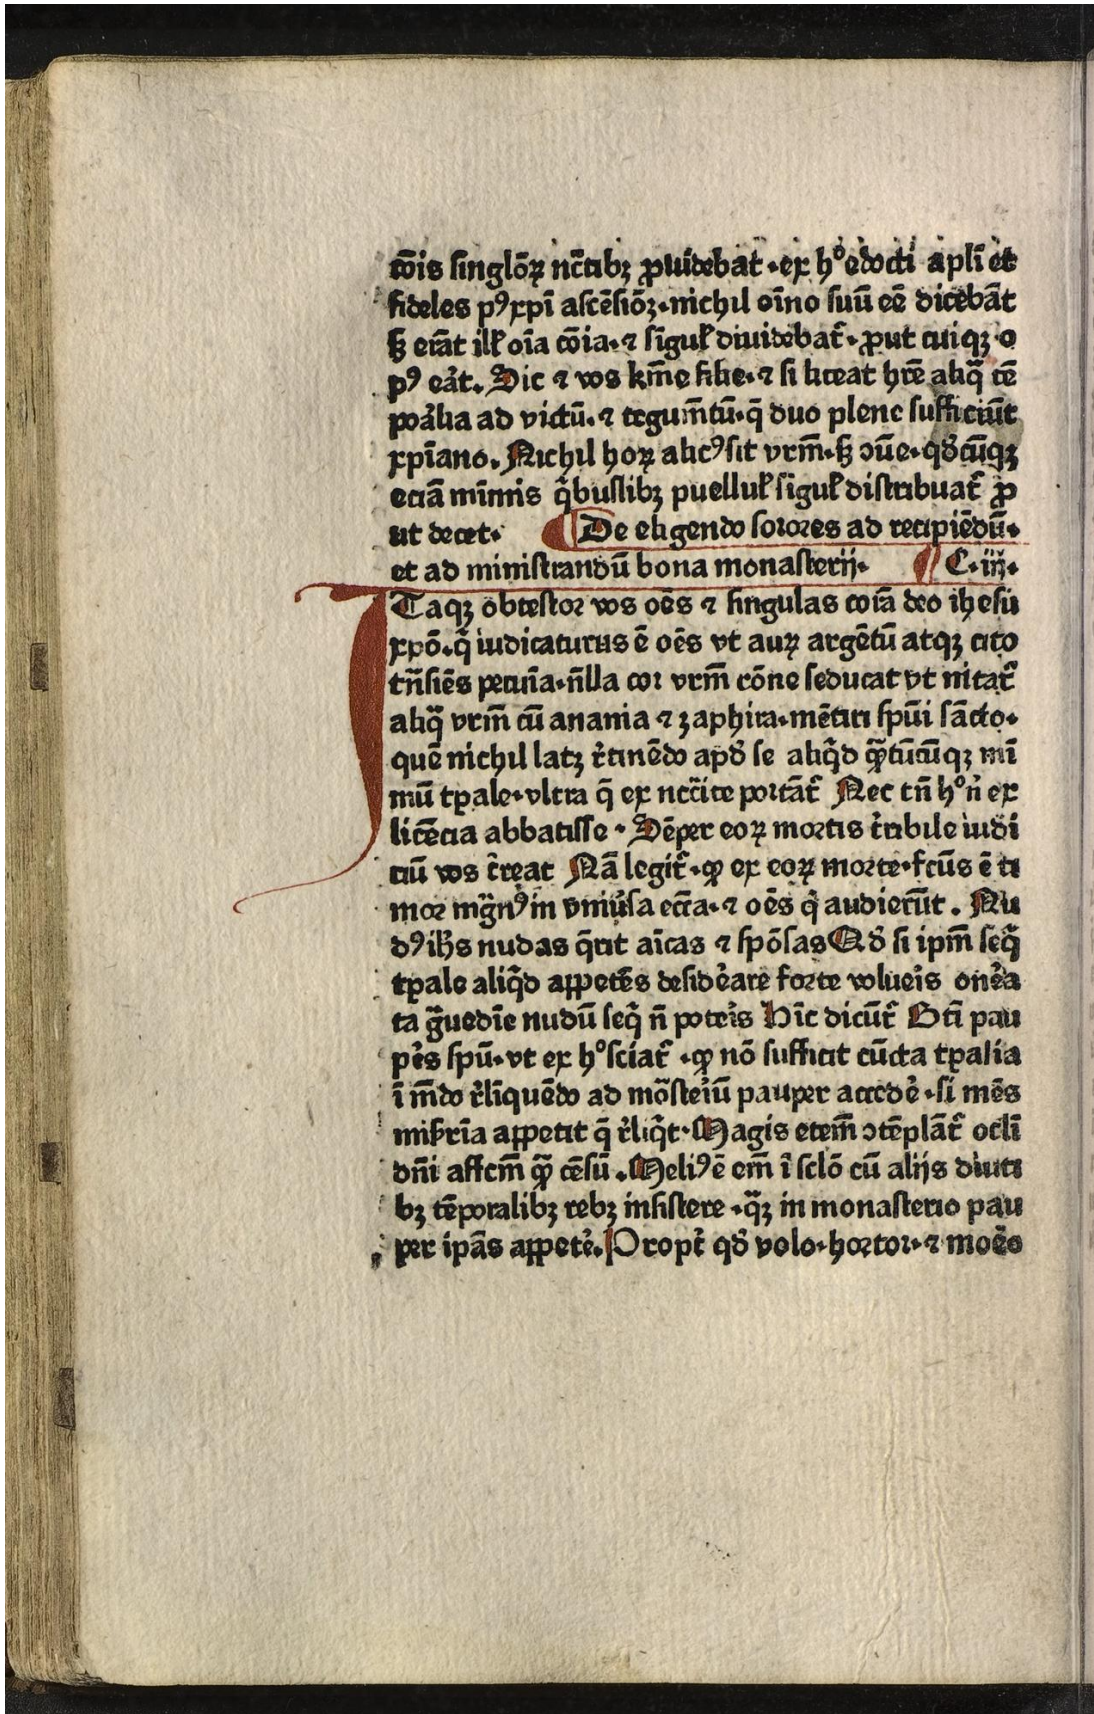 cōis singlōꝝ nc̄tibꝫ ꝓuidebat · ex hº edocti apl̄i et
fideles pꝰ xp̄i ascēsiōꝫ · nichil oīno suū eē dicebāt
sꝫ erāt ill̛ oīa cōia · ⁊ sīgul̛ diuidebat᷑ · ꝓut cuiqꝫ o
pꝰ eāt. Sic ⁊ vos km̄e filie · ⁊ si liceat hr̄e aliq̄ tē
poālia ad victū · ⁊ tegum̄tū · q̄ duo plene sufficiūt
xp̄iano. Nichil hoꝝ alicꝰ sit vrm̄ · sꝫ ↄūe · qd̄cūqꝫ
eciā minīis q̄buslibꝫ puellul̛ sīgul̛ distribuat᷑ ꝓ
ut decet · De eligendo sorores ad recipiēdū ·
et ad ministrandū bona monasterij · C · iij ·
ITaqꝫ obtestor vos oēs ⁊ singulas corā deo ihesu
xpō · q̄ iudicaturus ē oēs vt auꝝ argētū atqꝫ cito
tn̄siēs pecuīa · nl̄la cor vrm̄ rōne seducat vt nitat᷑
aliq̄ vrm̄ cū anania ⁊ zaphira · mētiri spūi sācto ·
quē nichil latꝫ r̄tinēdo apd̄ se aliq̄d q̄ꝫtūcūqꝫ mī
mū tꝑale · vltra q̄ ex nccīte portāt᷑ Nec tn̄ hº n̄ ex
licēcia abbatisse · Sēper eoꝝ mortis t̄ribile iudi
ciū vos t̄reat Nā legit᷑ · ꝙ ex eoꝝ morte · fcūs ē ti
mor mḡnꝰ in vniūsa ecc̄a · ⁊ oēs q̄ audierūt. Nu
dꝰ ihs̄ nudas q̄rit aīcas ⁊ spōsas Qd̄ si ipm̄ seq̄
tꝑale aliq̄d aꝑpetēs desid̄eare forte volueīs oneā
ta ḡuedīe nudū seq̄ n̄ poteīs Hīc dicūt᷑ Bt̄i pau
pēs spū · vt ex hº sciat᷑ · ꝙ nō sufficit cūcta tꝑalia
ī m̄do r̄liquēdo ad mōsteīū pauper accede · si mēs
mis̄ria aꝑpetit q̄ r̄liq̄t · Magis etem̄ ↄtēplāt᷑ ocl̄i
dn̄i affcm̄ q̄ꝫ cēsū. Meliꝰ ē em̄ ī sclō cū alijs diuti
bꝫ tēporalibꝫ rebꝫ insistere · q̄ꝫ in monasterio pau
per ipās aꝑpetē. Propt̄ qd̄ volo · hortor · ⁊ moēo